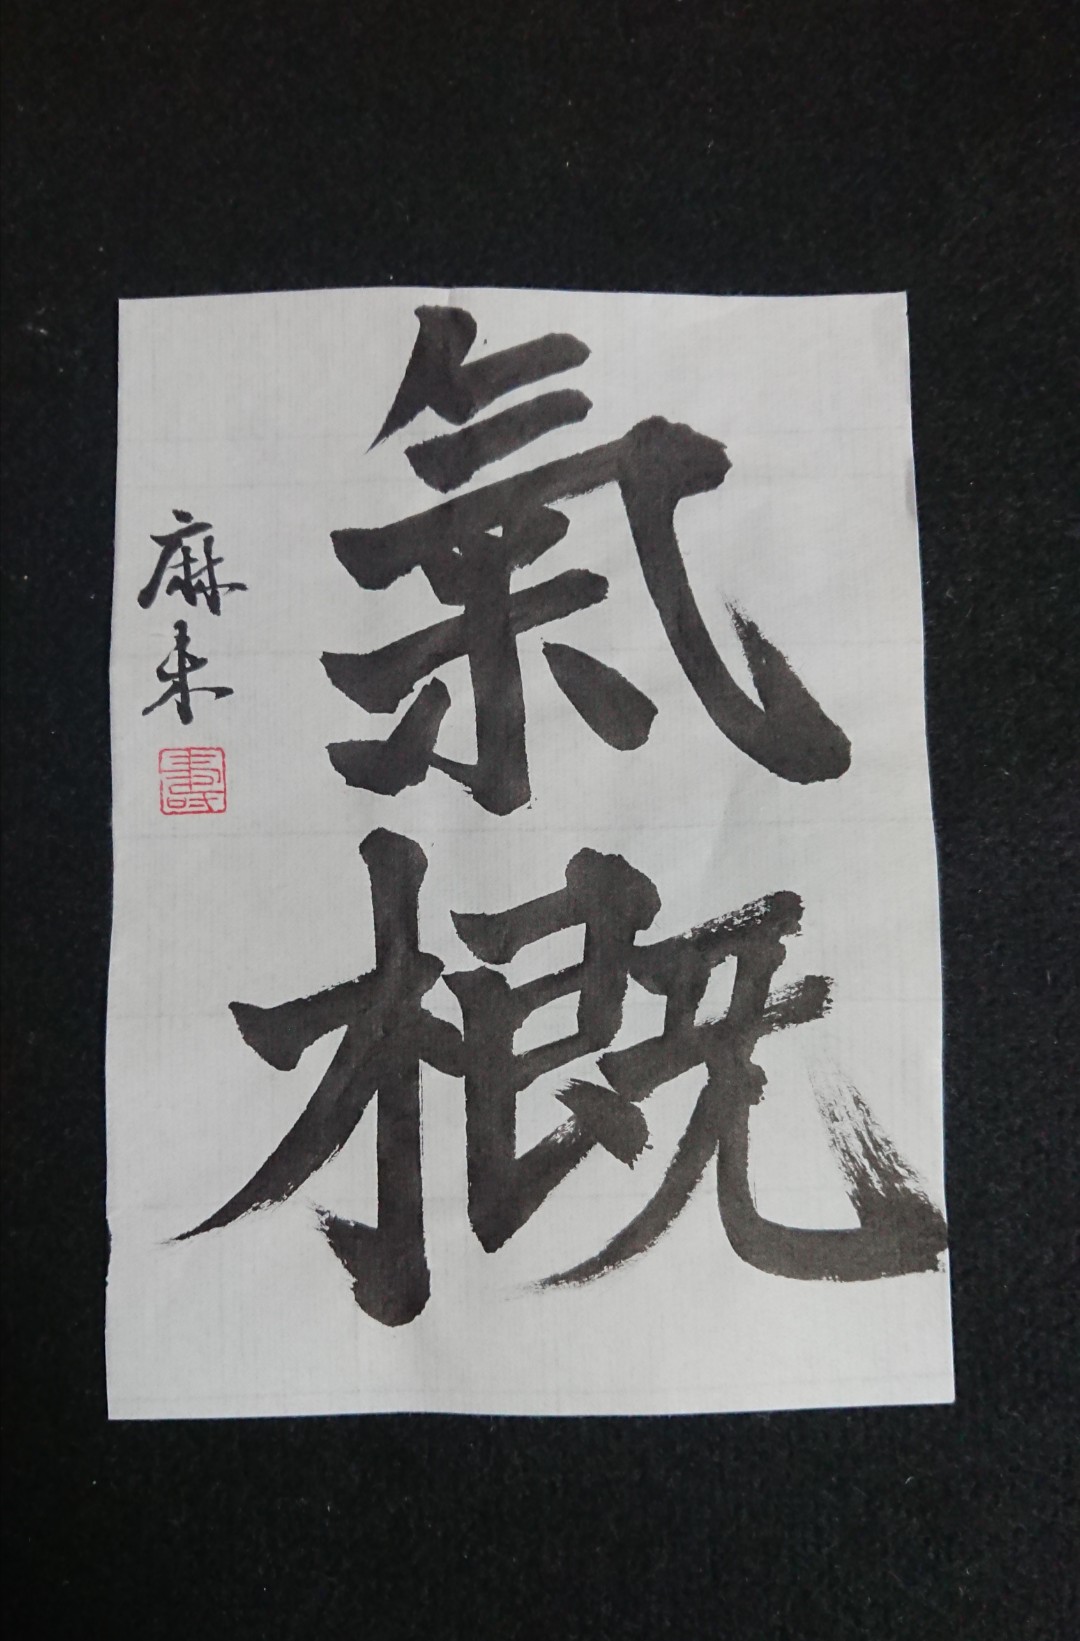 氣概
麻未